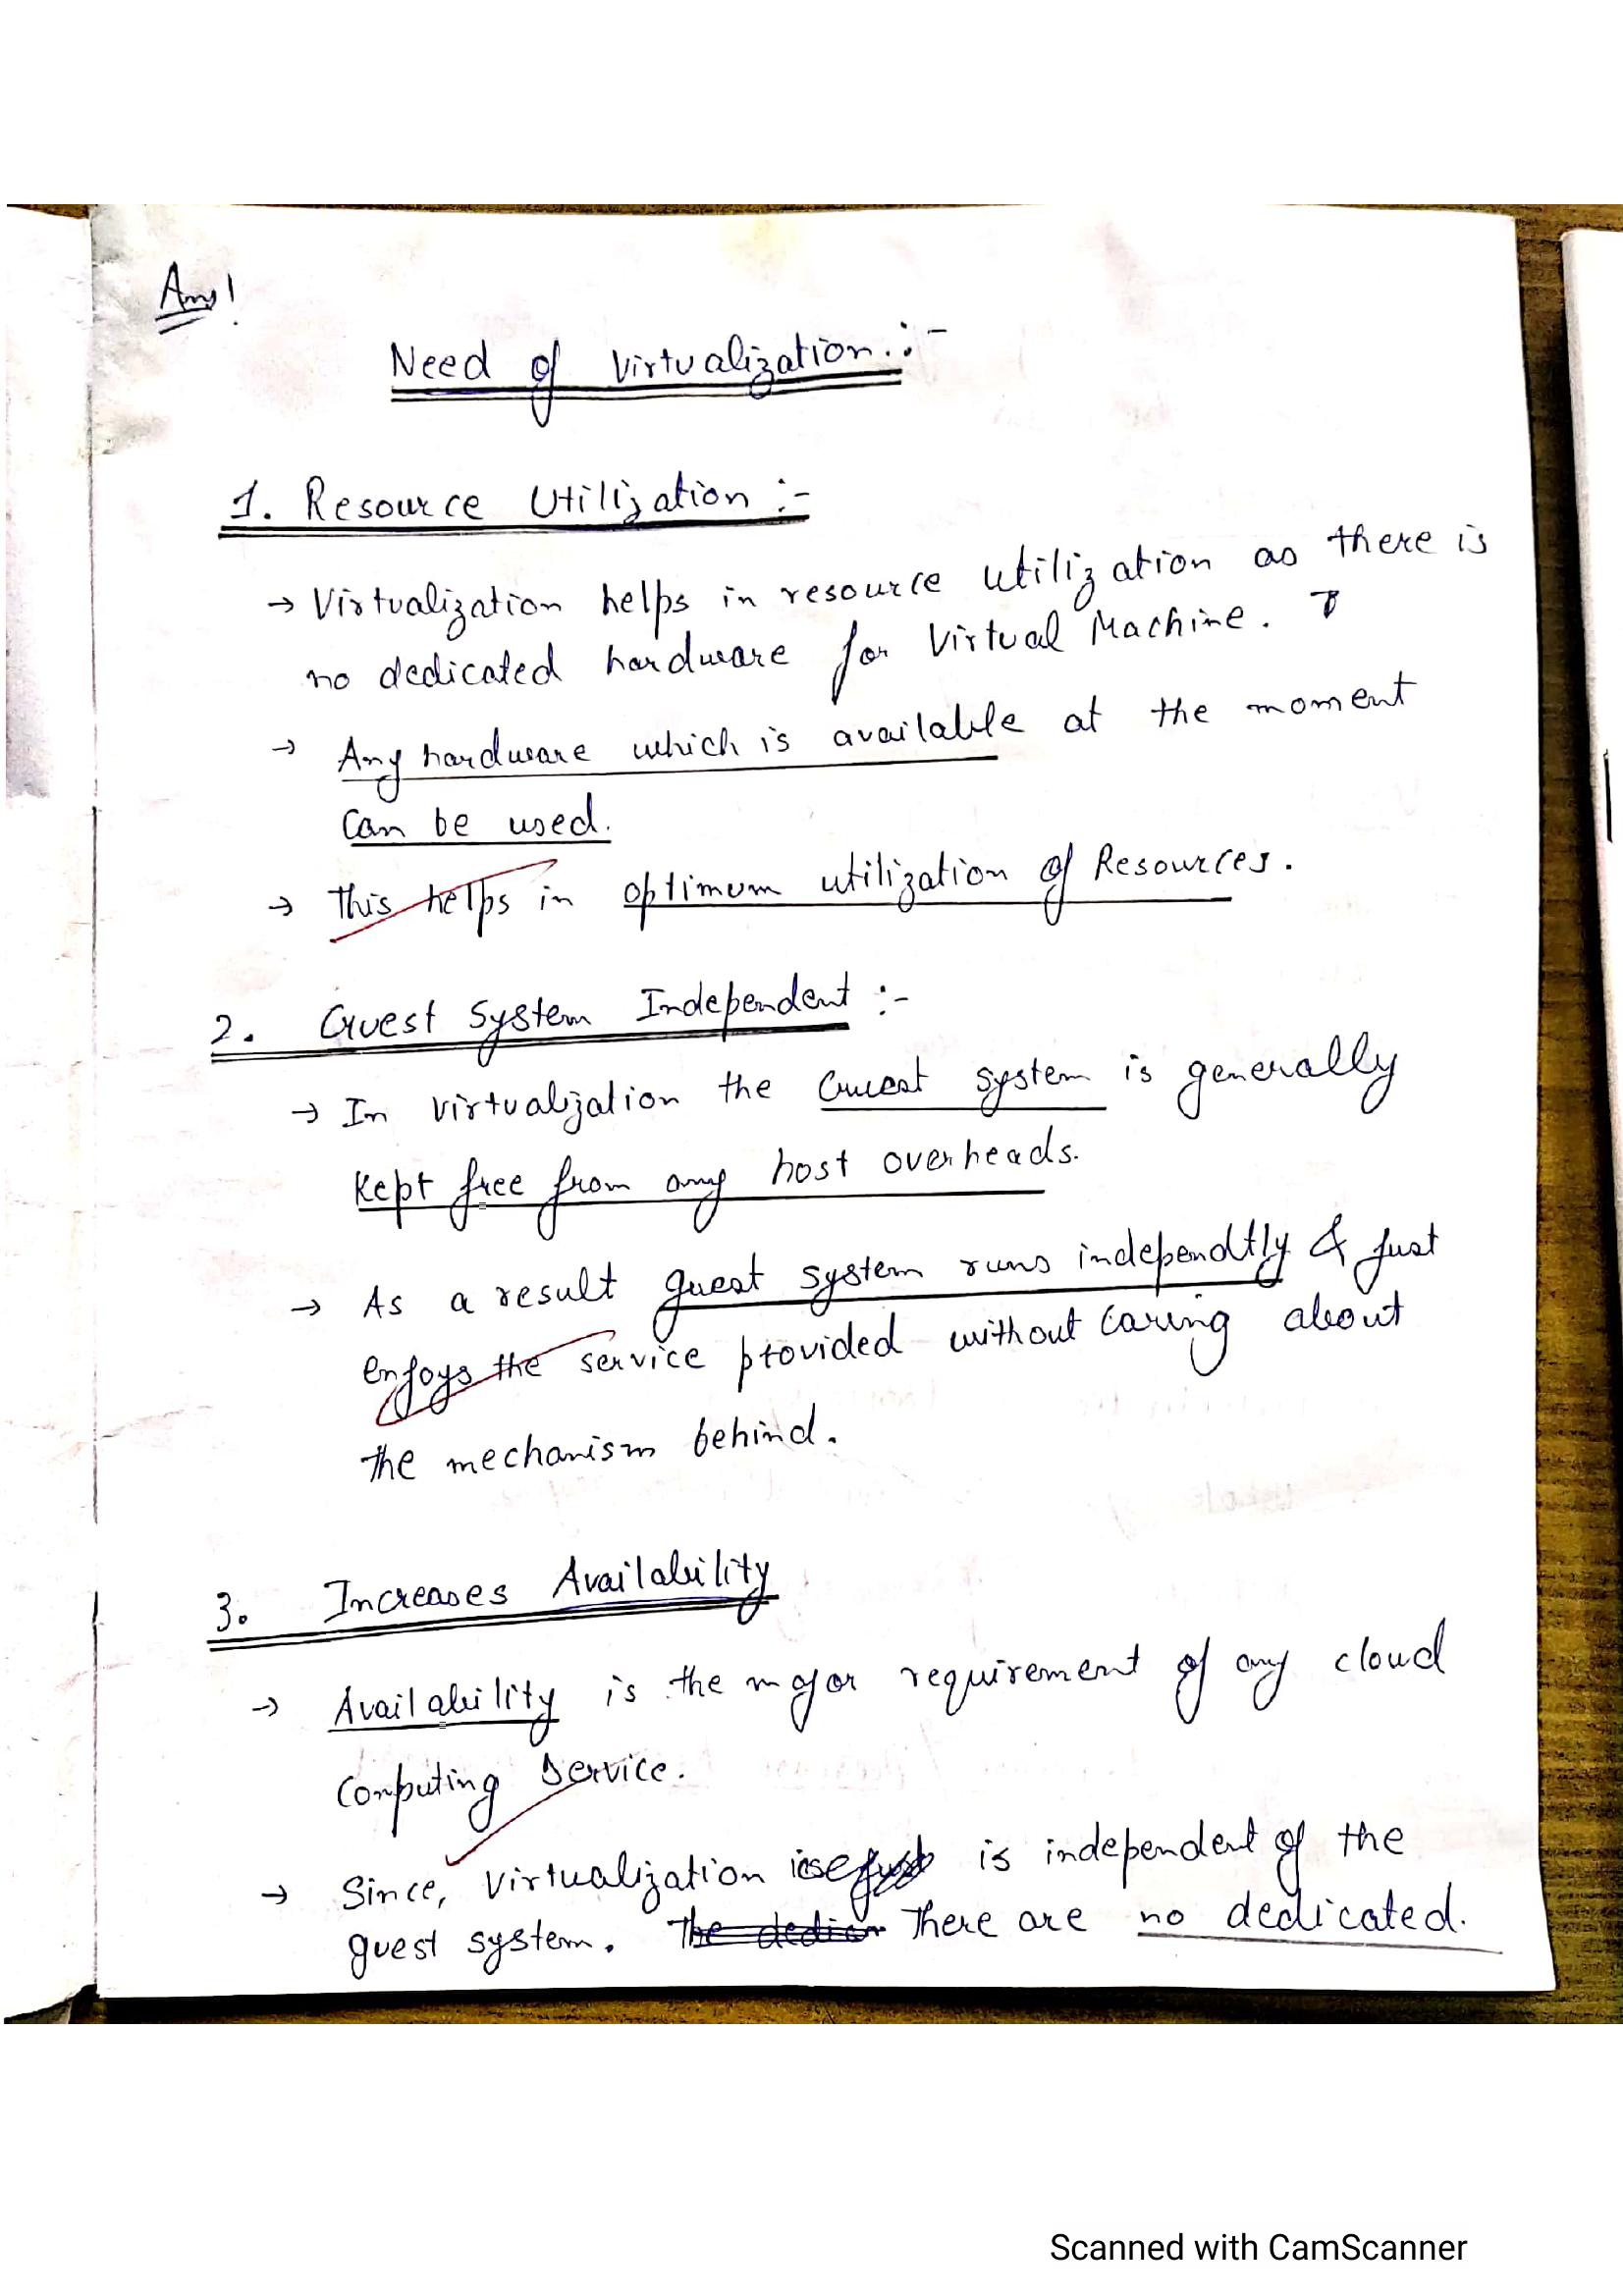 Ans!
Need of Virtualization :-
1. Resource Utilization :-
→ Virtualization helps in resource utilization as there is
no dedicated hardware for Virtual Machine.
→ Any hardware which is available at the moment
Can be used.
→ This helps in optimum utilization of Resources.
2. Guest System Independent :-
→ In virtualization the Guest system is generally
Kept free from any host overheads.
→ As a result guest system runs independtly & just
enjoys the service provided without caring about
the mechanism behind.
3. Increases Availability
→ Availability is the major requirement of any cloud
Computing Service.
→ Since, virtualization is independent of the
guest system. There are no dedicated.
Scanned with CamScanner